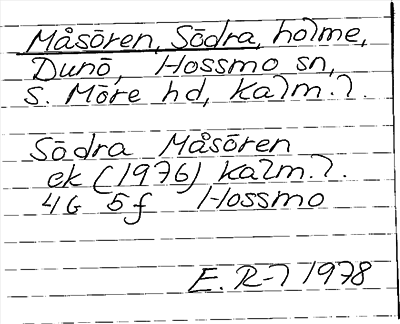 Måsören, Södra, holme,
Dunö, Hossmo sn,
S. Möre hd, Kalm. l.
Södra Måsören
ek (1976) Kalm. l.
4G 5f Hossmo
E. R-l 1978